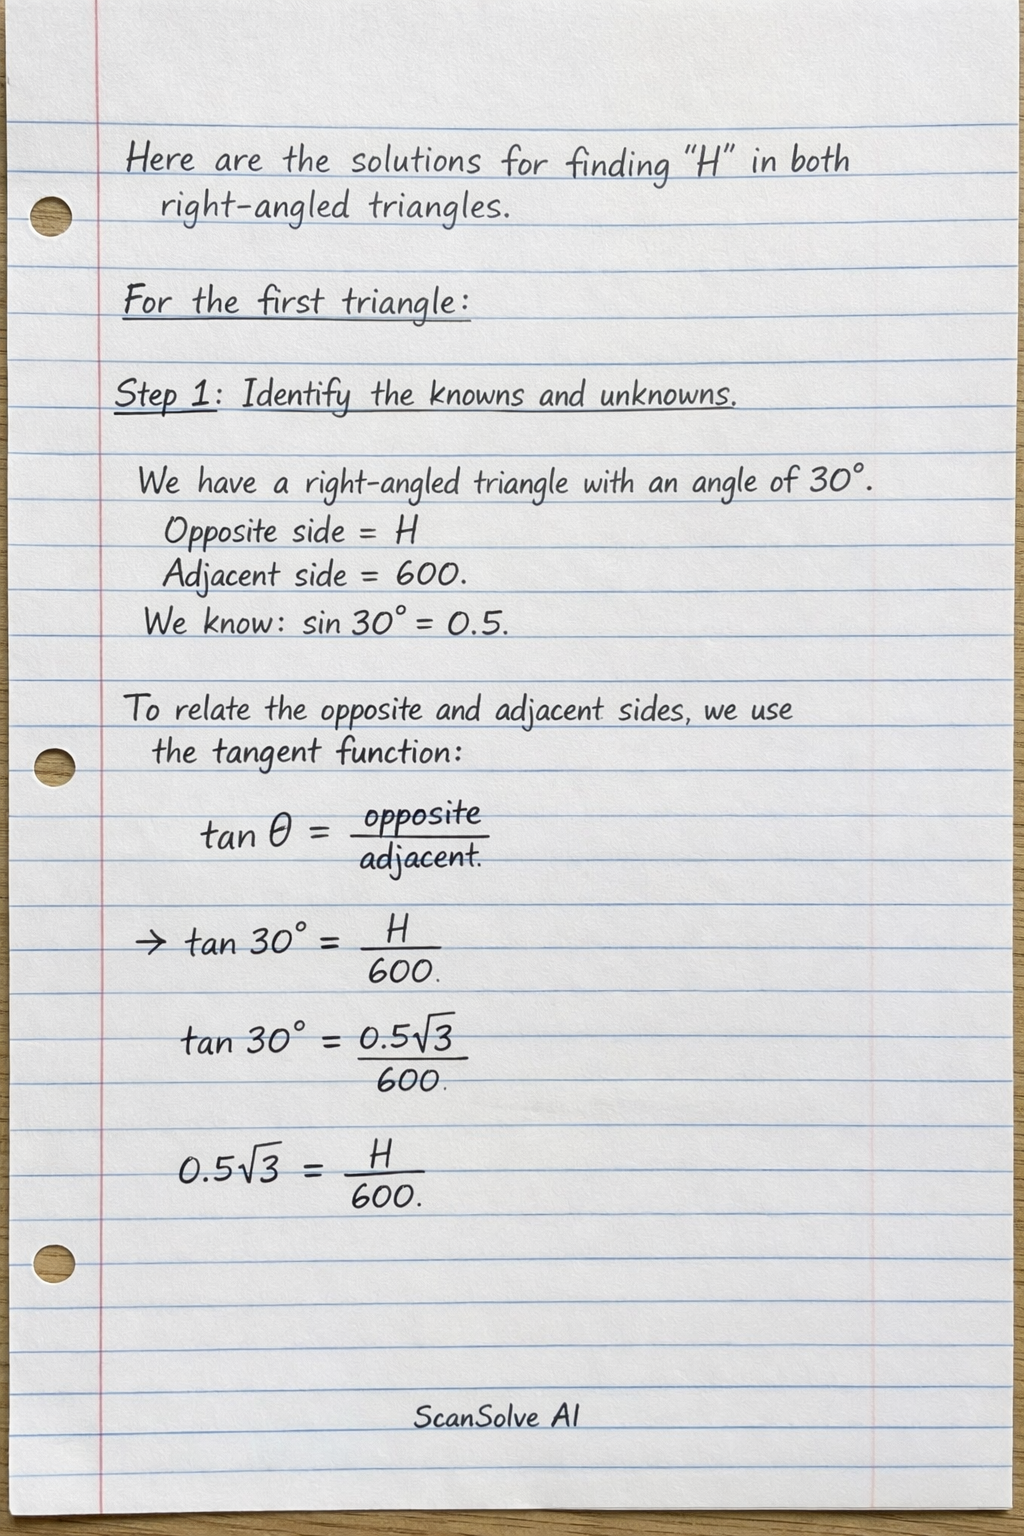 Here are the solutions for finding "H" in both
right-angled triangles.
For the first triangle:
Step 1: Identify the knowns and unknowns.
We have a right-angled triangle with an angle of 30°.
Opposite side = H
Adjacent side = 600.
We know: sin 30° = 0.5.
To relate the opposite and adjacent sides, we use
the tangent function:
tan θ = opposite / adjacent.
→ tan 30° = H / 600.
tan 30° = 0.5√3 / 600.
0.5√3 = H / 600.
ScanSolve AI